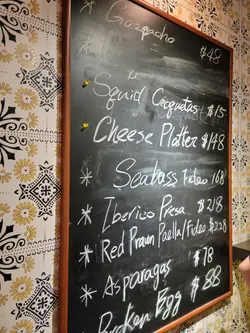 * Gazpacho $48
Squid Croquetas $15
Cheese Platter $148
* Seabass Fideo 168
* Iberico Presa $218
* Red Prawn Paella/Fideo $228
* Asparagus $78
Broken Egg $88